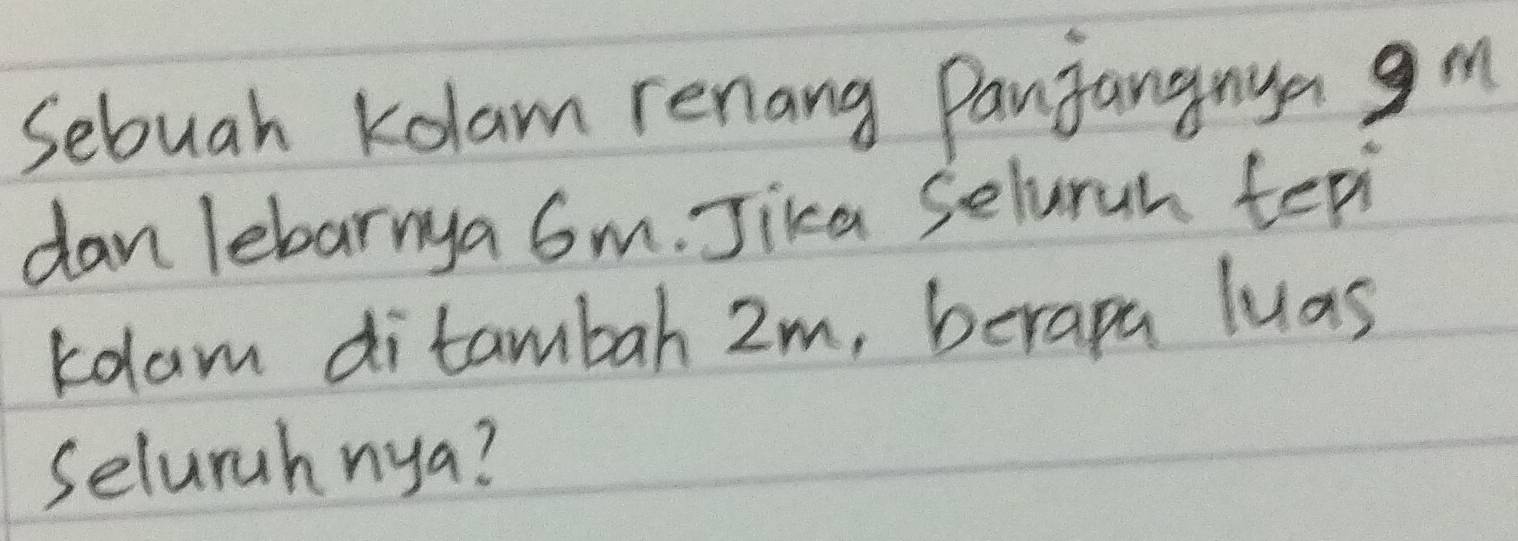 Sebuah Kolam renang Panjangnya 9 m
dan lebarnya 6m. Jika Seluruh tepi
Kolam di tambah 2m, berapa luas
Seluruh nya?